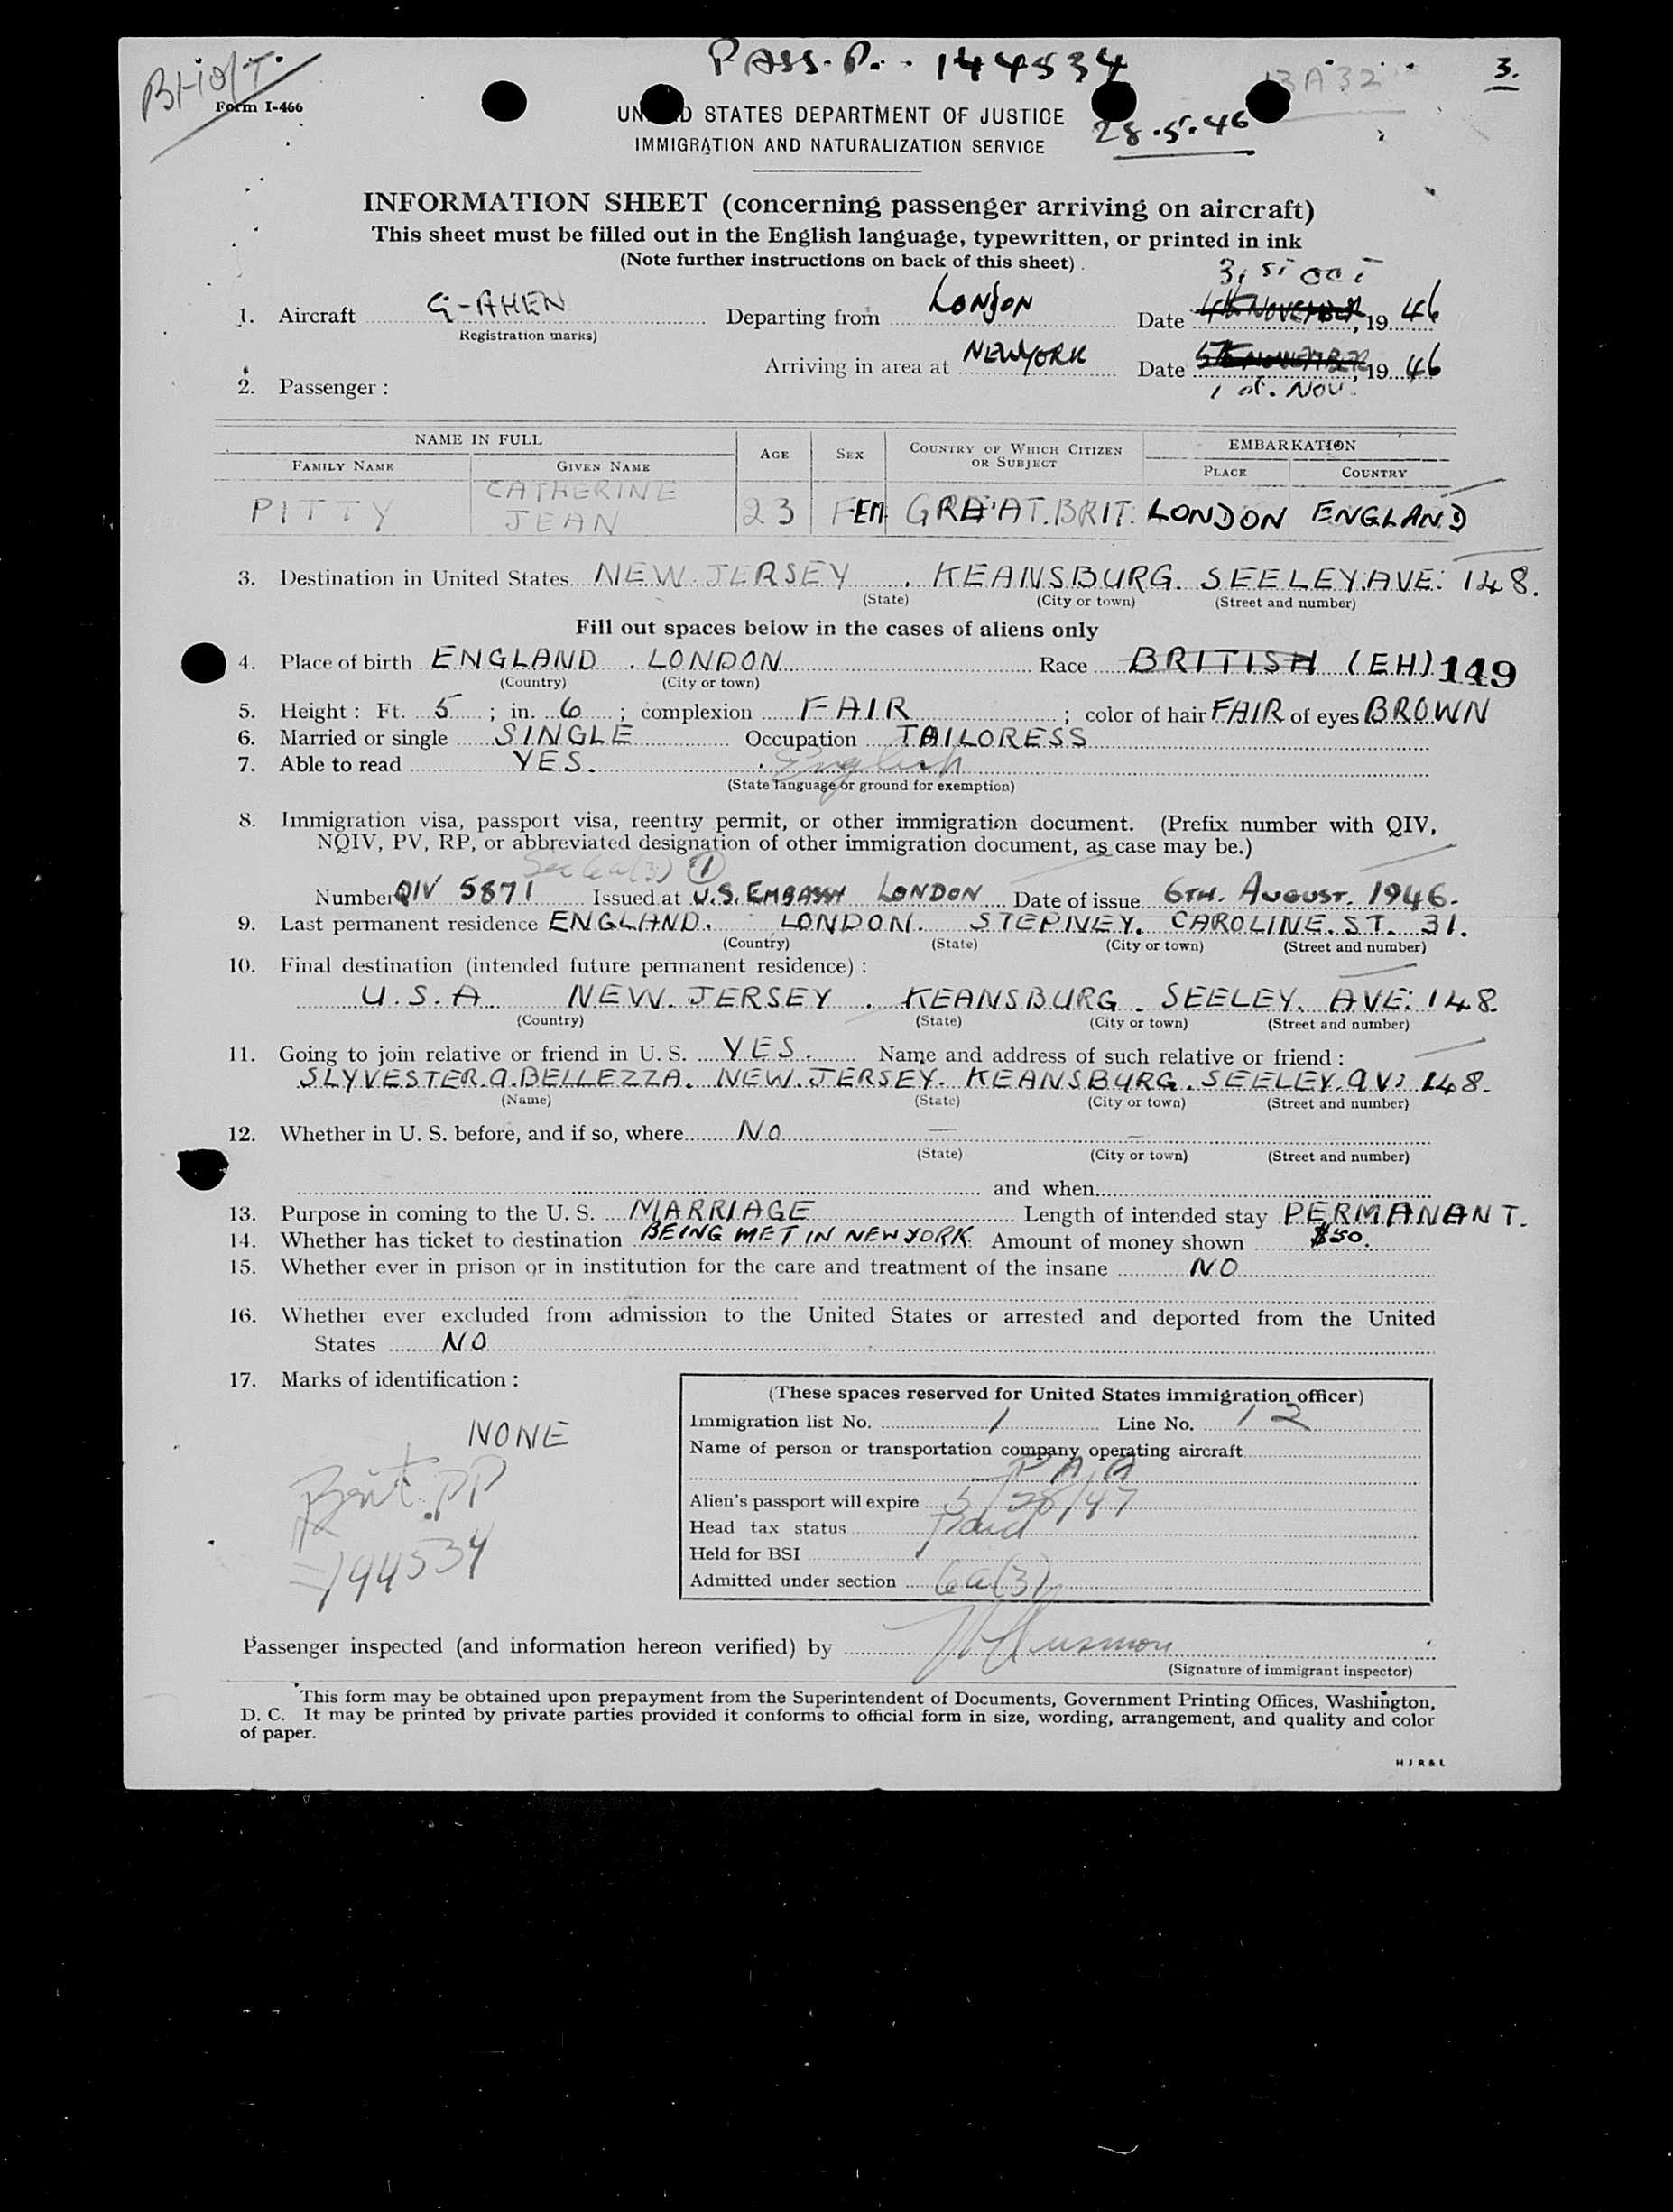 PASS. P. . 144534
3.
BHIO/T.
13A32
Form I-466
UNITED STATES DEPARTMENT OF JUSTICE
28.5.46
IMMIGRATION AND NATURALIZATION SERVICE
INFORMATION SHEET (concerning passenger arriving on aircraft)
This sheet must be filled out in the English language, typewritten, or printed in ink
(Note further instructions on back of this sheet)
31st Oct
1. Aircraft G-AHEN Departing from LONDON Date 4th NOVEMBER, 19 46
(Registration marks)
Arriving in area at NEW YORK Date 5th NOVEMBER, 19 46
2. Passenger : 1 st. Nov.
NAME IN FULL AGE SEX COUNTRY OF WHICH CITIZEN OR SUBJECT EMBARKATION
FAMILY NAME GIVEN NAME PLACE COUNTRY
CATHERINE
PITTY JEAN 23 FEM. GREAT.BRIT. LONDON ENGLAND
3. Destination in United States NEW JERSEY . KEANSBURG. SEELEY.AVE: 148.
(State) (City or town) (Street and number)
Fill out spaces below in the cases of aliens only
4. Place of birth ENGLAND . LONDON Race BRITISH (EH) 149
(Country) (City or town)
5. Height : Ft. 5 ; in. 6 ; complexion FAIR ; color of hair FAIR of eyes BROWN
6. Married or single SINGLE Occupation TAILORESS
7. Able to read YES. English
(State language or ground for exemption)
8. Immigration visa, passport visa, reentry permit, or other immigration document. (Prefix number with QIV,
NQIV, PV, RP, or abbreviated designation of other immigration document, as case may be.)
Sec 6a(3) 1
Number QIV 5871 Issued at U.S. EMBASSY LONDON Date of issue 6TH. AUGUST. 1946.
9. Last permanent residence ENGLAND. LONDON. STEPNEY. CAROLINE. ST. 31.
(Country) (State) (City or town) (Street and number)
10. Final destination (intended future permanent residence) :
U.S.A. NEW. JERSEY . KEANSBURG . SEELEY. AVE: 148.
(Country) (State) (City or town) (Street and number)
11. Going to join relative or friend in U. S. YES. Name and address of such relative or friend :
SLYVESTER.A.BELLEZZA. NEW.JERSEY. KEANSBURG. SEELEY.AV: 148.
(Name) (State) (City or town) (Street and number)
12. Whether in U. S. before, and if so, where NO — —
(State) (City or town) (Street and number)
and when
13. Purpose in coming to the U. S. MARRIAGE Length of intended stay PERMANANT.
14. Whether has ticket to destination BEING MET IN NEW YORK. Amount of money shown $50.
15. Whether ever in prison or in institution for the care and treatment of the insane NO
16. Whether ever excluded from admission to the United States or arrested and deported from the United
States NO
17. Marks of identification :
NONE
Brit. PP
144534
(These spaces reserved for United States immigration officer)
Immigration list No. 1 Line No. 12
Name of person or transportation company operating aircraft
P A A
Alien's passport will expire 5/28/47
Head tax status Paid
Held for BSI
Admitted under section 6a(3)
Passenger inspected (and information hereon verified) by
(Signature of immigrant inspector)
This form may be obtained upon prepayment from the Superintendent of Documents, Government Printing Offices, Washington,
D. C. It may be printed by private parties provided it conforms to official form in size, wording, arrangement, and quality and color
of paper.
H J R & L